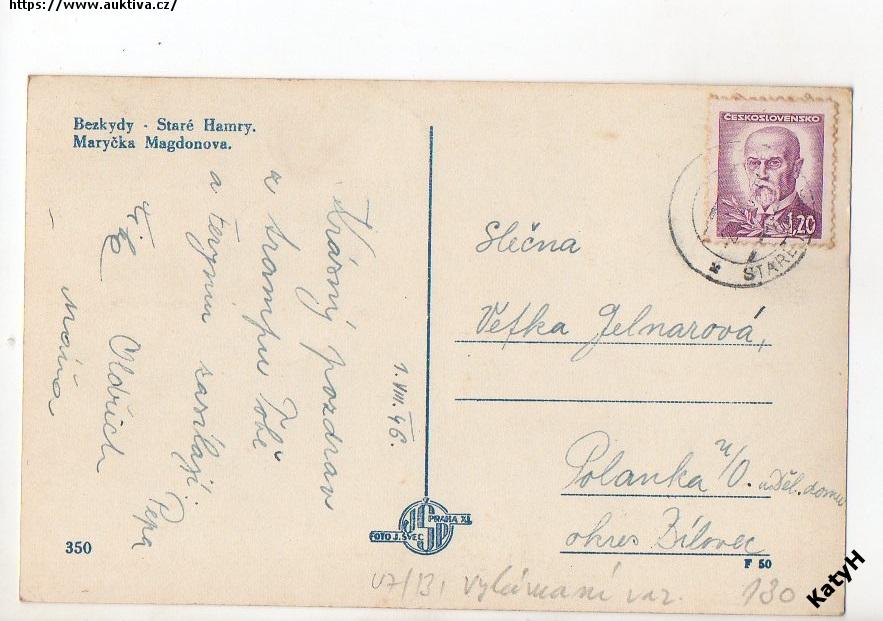 https://www.auktiva.cz/
Bezkydy - Staré Hamry.
Maryčka Magdonova.
ČESKOSLOVENSKO
1,20
STARÉ
Krásný pozdrav
z trampu Tobě
a Tvojim zasílají
Pepa
Oldřich
1.VIII.46.
Slečna
Vefka Jelnarová,
Polanka n/O. u Děl. domu
okres Bílovec
350
FOTO J. ŠVEC
PRAHA XI.
F 50
U7/13, vylámaní
130
KatyH